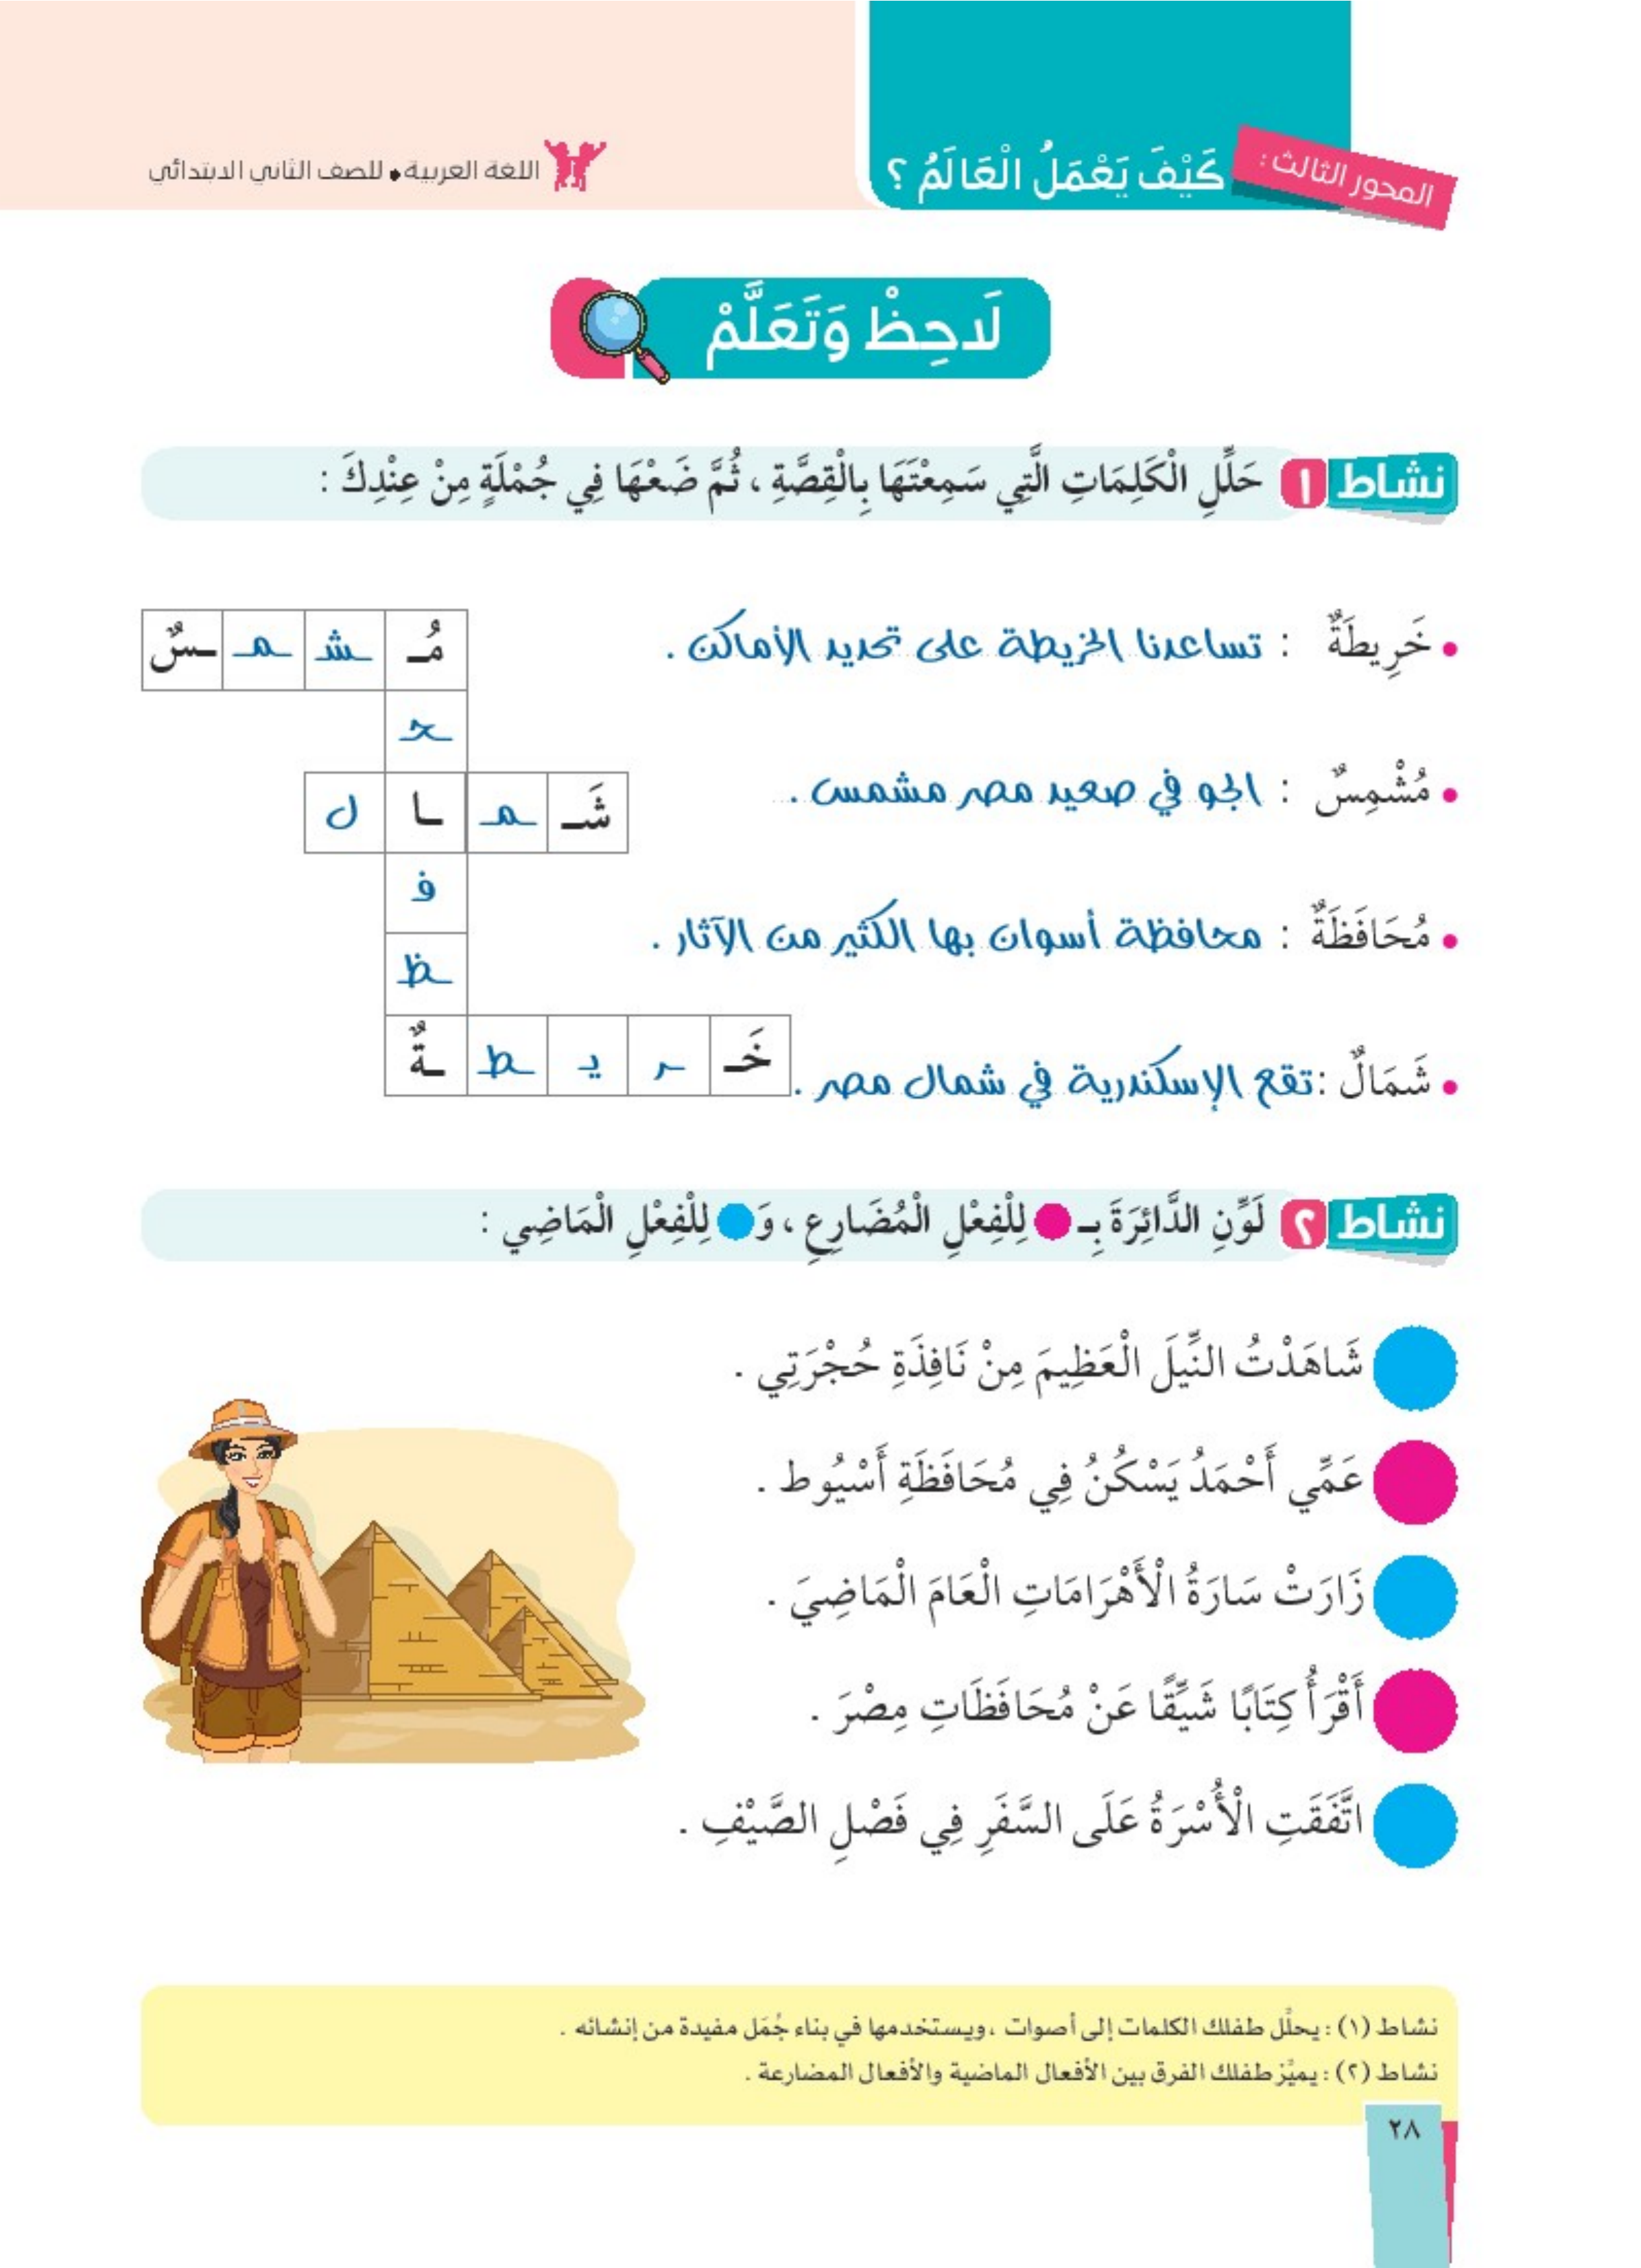 المحور الثالث :
كَيْفَ يَعْمَلُ الْعَالَمُ ؟
اللغة العربية • للصف الثاني الابتدائي
لَاحِظْ وَتَعَلَّمْ
نشاط ١ حَلِّلِ الْكَلِمَاتِ الَّتِي سَمِعْتَهَا بِالْقِصَّةِ ، ثُمَّ ضَعْهَا فِي جُمْلَةٍ مِنْ عِنْدِكَ :
• خَرِيطَةٌ : تساعدنا الخريطة على تحديد الأماكن .
مُـ ـشـ ـمـ ـسٌ
ـحـ
• مُشْمِسٌ : الجو في صعيد مصر مشمس .
شَـ ـمـ ـا ل
فـ
• مُحَافَظَةٌ : محافظة أسوان بها الكثير من الآثار .
ـظـ
• شَمَالٌ : تقع الإسكندرية في شمال مصر .
خَـ ـر يـ ـطـ ـةٌ
نشاط ٢ لَوِّنِ الدَّائِرَةَ بِـ لِلْفِعْلِ الْمُضَارِعِ ، وَ لِلْفِعْلِ الْمَاضِي :
شَاهَدْتُ النِّيلَ الْعَظِيمَ مِنْ نَافِذَةِ حُجْرَتِي .
عَمِّي أَحْمَدُ يَسْكُنُ فِي مُحَافَظَةِ أَسْيُوط .
زَارَتْ سَارَةُ الْأَهْرَامَاتِ الْعَامَ الْمَاضِيَ .
أَقْرَأُ كِتَابًا شَيِّقًا عَنْ مُحَافَظَاتِ مِصْرَ .
اتَّفَقَتِ الْأُسْرَةُ عَلَى السَّفَرِ فِي فَصْلِ الصَّيْفِ .
نشاط (١) : يحلِّل طفلك الكلمات إلى أصوات ، ويستخدمها في بناء جُمَل مفيدة من إنشائه .
نشاط (٢) : يميِّز طفلك الفرق بين الأفعال الماضية والأفعال المضارعة .
٢٨